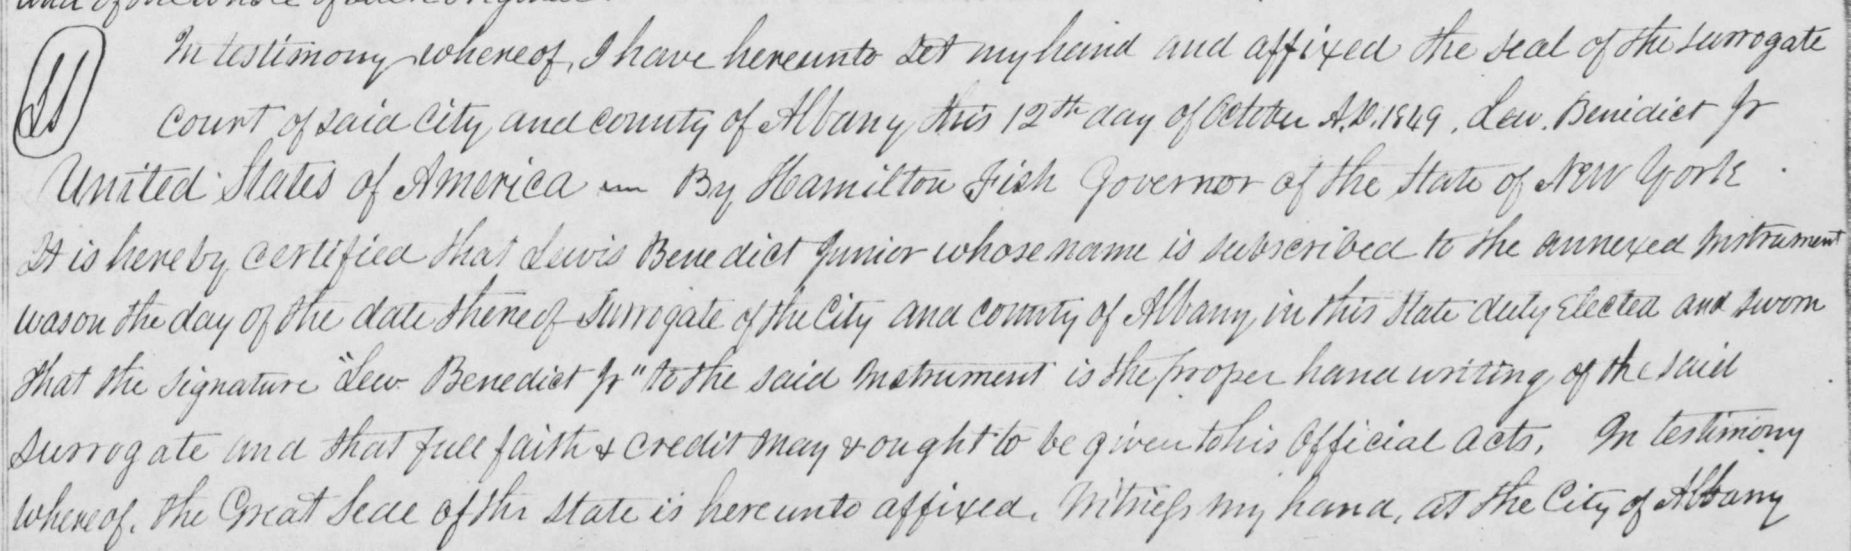 and of the whole of such original.
LS In testimony whereof, I have hereunto set my hand and affixed the seal of the surrogate
court of said City, and county of Albany, this 12th day of October A.D. 1849. Lew. Benidict Jr
United States of America By Hamilton Fish Governor of the State of New York.
It is hereby certified that Lewis Benedict Junior whose name is subscribed to the annexed Instrument
was on the day of the date thereof Surrogate of the City and county of Albany, in this State duly elected and sworn
that the signature "Lew Benedict Jr" to the said Instrument is the proper hand writing, of the said
surrogate and that full faith & credit may & ought to be given to his Official acts. In testimony
whereof. the Great Seal of the State is hereunto affixed. Witness my hand, at the City of Albany